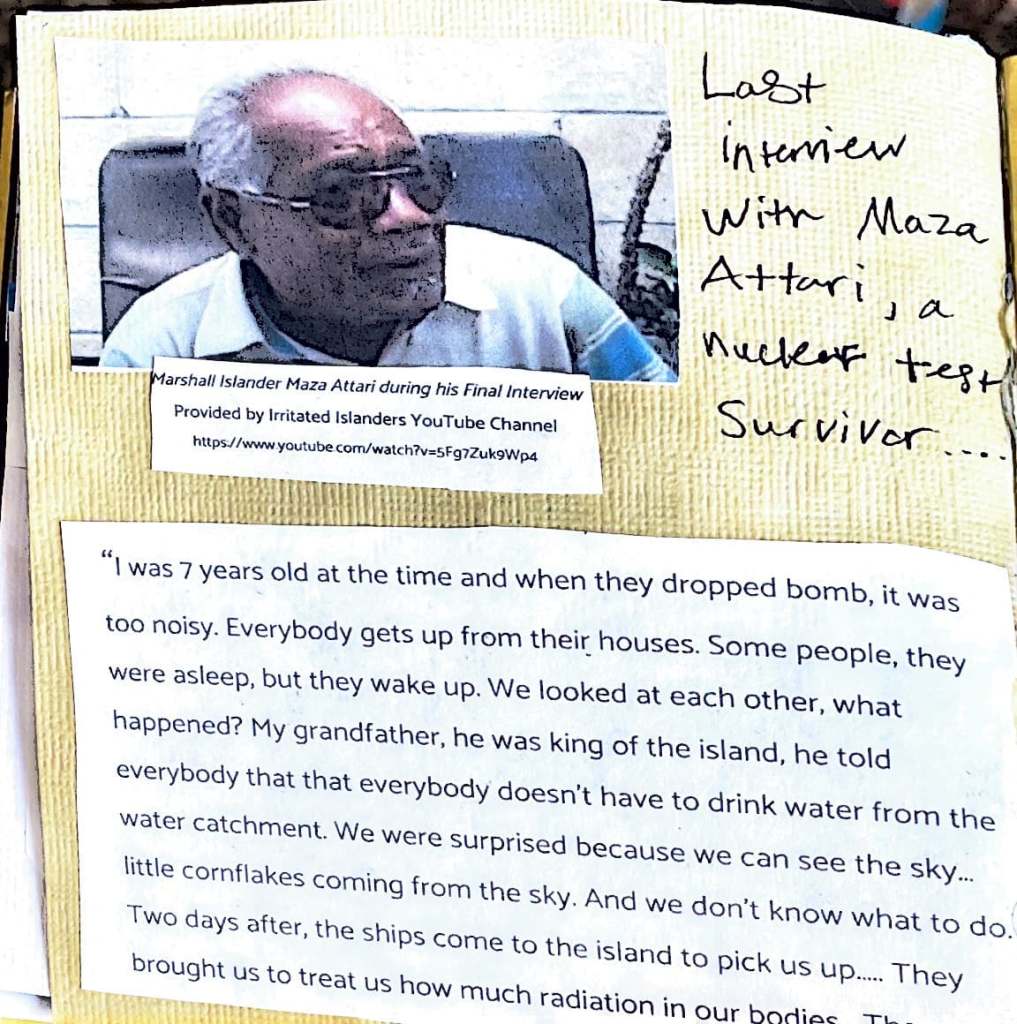 Last
interview
with Maza
Attari, a
nuclear test
Survivor....
Marshall Islander Maza Attari during his Final Interview
Provided by Irritated Islanders YouTube Channel
https://www.youtube.com/watch?v=5Fg7Zuk9Wp4
“I was 7 years old at the time and when they dropped bomb, it was
too noisy. Everybody gets up from their houses. Some people, they
were asleep, but they wake up. We looked at each other, what
happened? My grandfather, he was king of the island, he told
everybody that that everybody doesn’t have to drink water from the
water catchment. We were surprised because we can see the sky...
little cornflakes coming from the sky. And we don’t know what to do.
Two days after, the ships come to the island to pick us up..... They
brought us to treat us how much radiation in our bodies.